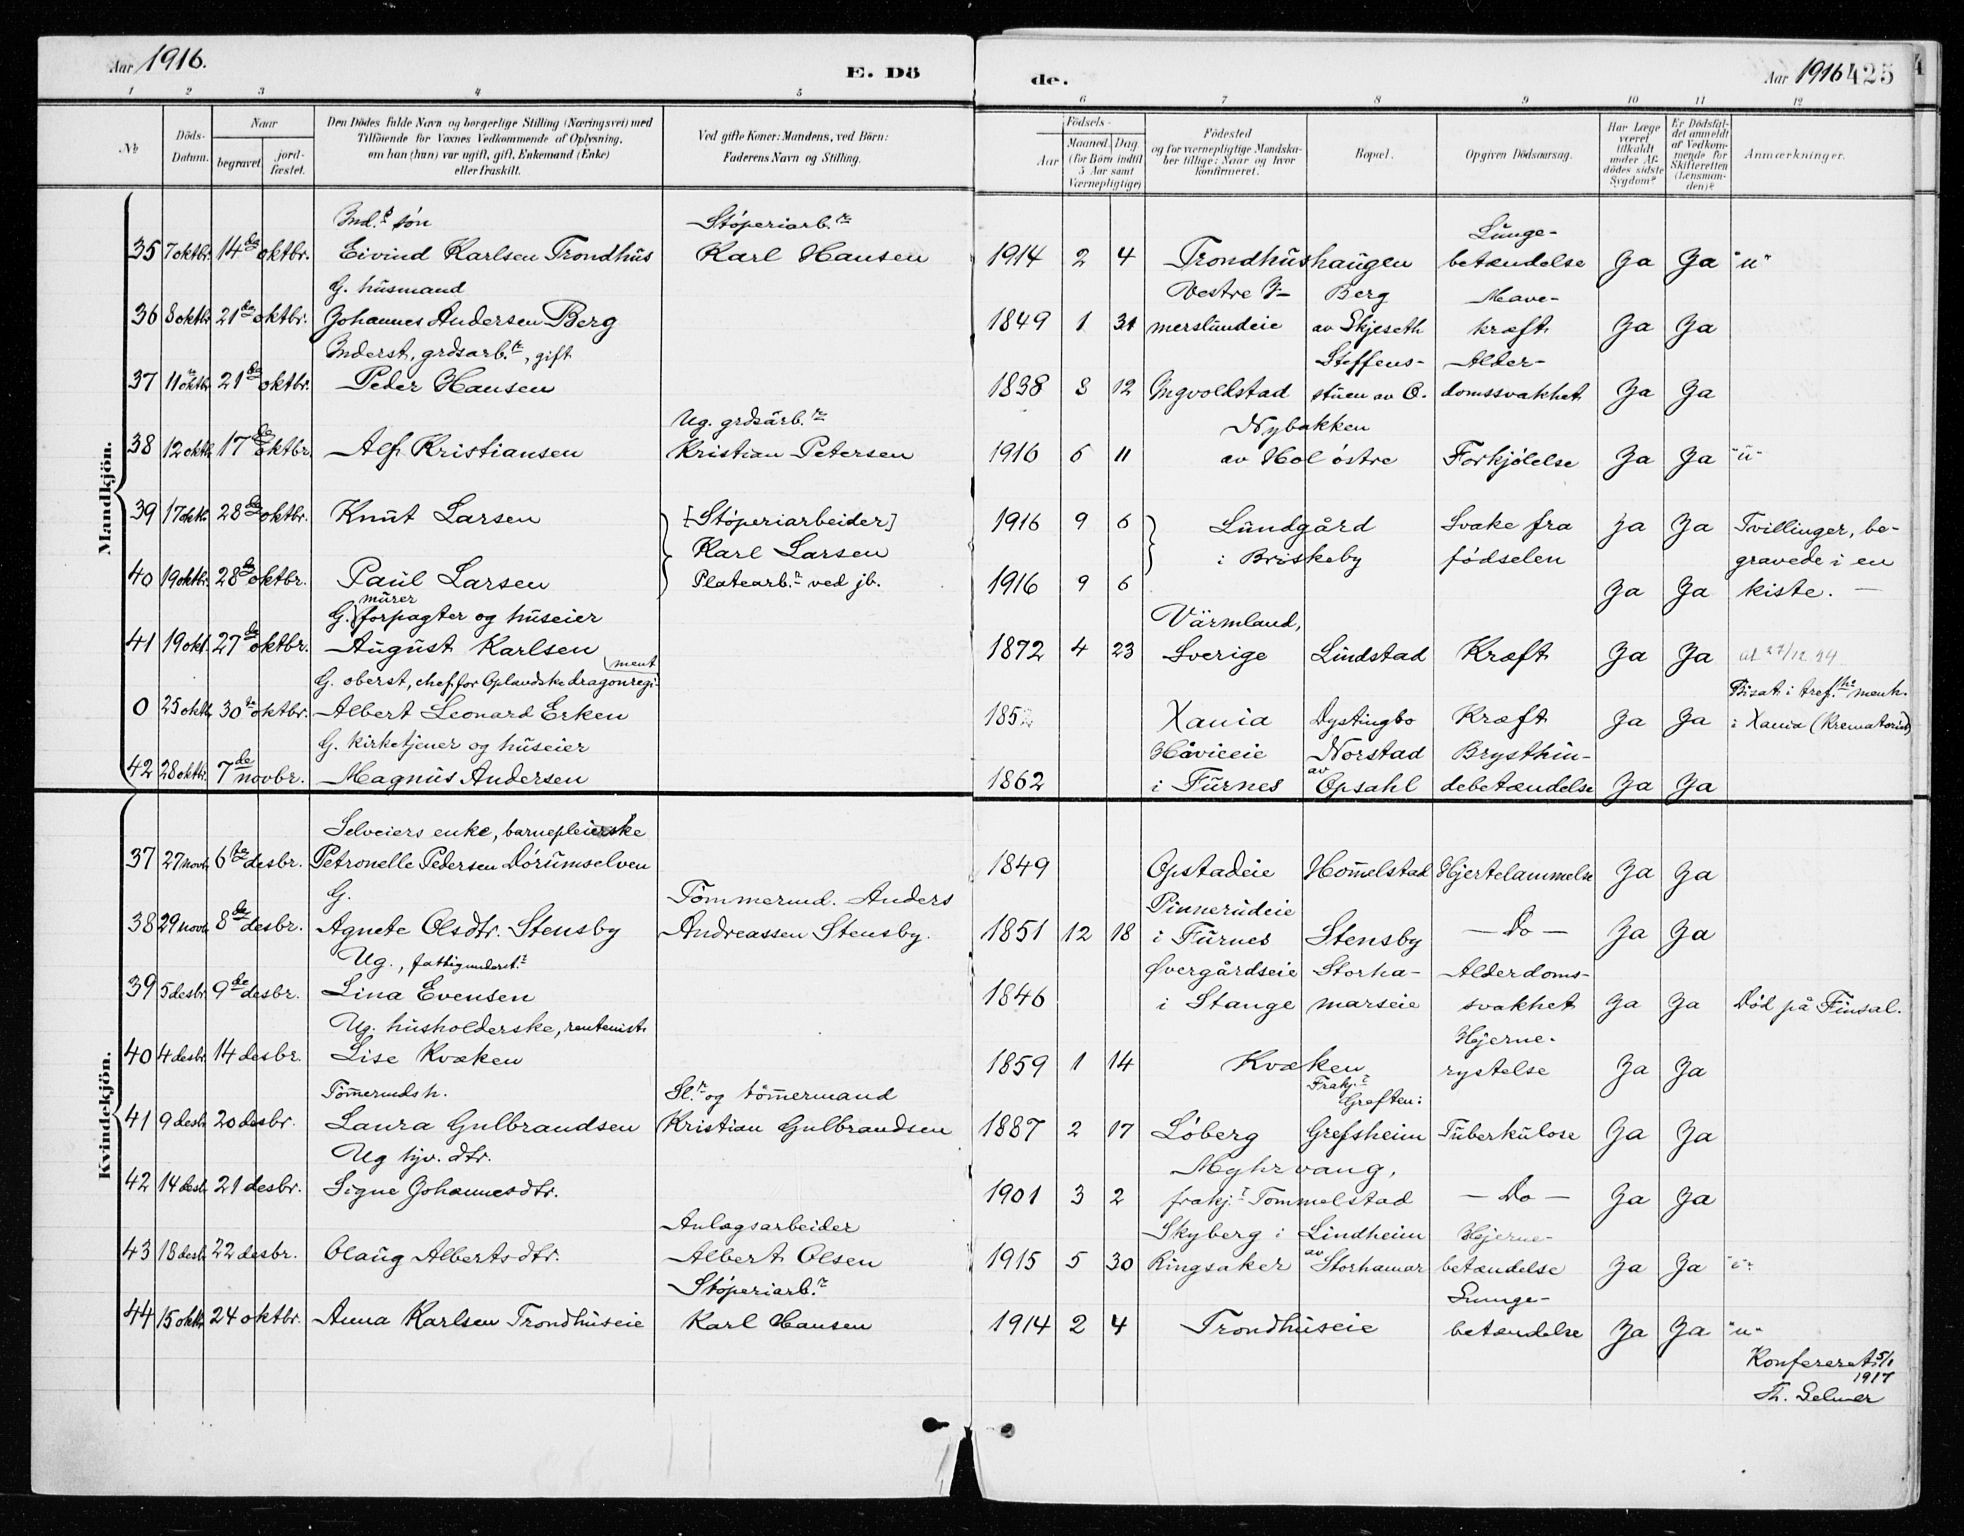 Aar 1916.
E. Dö
de.
Aar 1916 425
1 2 3 4 5 6 7 8 9 10 11 12
No
Döds-Datum.
Naar
begravet.
jord-fæstet.
Den Dödes fulde Navn og borgerlige Stilling (Næringsvei) med
Tilföiende for Voxnes Vedkommende af Oplysning,
om han (hun) var ugift, gift, Enkemand (Enke)
eller fraskilt.
Ved gifte Koner: Mandens, ved Börn:
Faderens Navn og Stilling.
Födsels-
Aar
Maaned. Dag
(for Börn indtil
5 Aar samt
Værnepligtige)
Födested
og for værnepligtige Mandska-
ber tillige: Naar og hvor
konfirmeret.
Bopæl.
Opgiven Dödsaarsag.
Har Læge
været
tilkaldt
under Af-
dödes sidste
Sygdom?
Er Dödsfal-
det anmeldt
af Vedkom-
mende for
Skifteretten
(Lensman-
den)?
Anmærkninger.
Mandkjön.
Ind.s sön Støperiarb.r Lunge-
35 7 oktbr. 14de oktbr. Eivind Karlsen Trondhus Karl Hansen 1914 2 4 Trondhushaugen betændelse Ja Ja "u"
G. husmand Vestre I- Berg Mave-
36 8 oktbr 21de oktbr. Johannes Andersen Berg 1849 1 31 merslundeie av Skjeseth kræft Ja Ja
Inderst, grdsarb.r, gift Steffens- Alder-
37 11 oktbr 21de oktbr. Peder Hansen 1838 8 12 Ingvoldstad stuen av O. domssvakhet Ja Ja
Ug. grdsarb.r Nybakken
38 12 oktb. 17de oktbr. Alf Kristiansen Kristian Petersen 1916 6 11 av Hol østre Forkjølelse Ja Ja "u"
39 17 oktb. 28de oktbr. Knut Larsen [Støperiarbeider] 1916 9 6 Lundgård Svake fra Ja Ja Tvillinger, be-
Karl Larsen i Briskeby fødselen gravede i en
40 19 oktbr. 28de oktbr. Paul Larsen Platearb.r ved jb. 1916 9 6 Ja Ja kiste. —
murer
G. forpagter og huseier Värmland,
41 19 okt. 27de oktbr. August Karlsen 1872 4 23 Sverige Lindstad Kræft Ja Ja ut 27/12 24
ment
G. oberst, chef for Oplandske dragonregi- Bisat i tref.hs menh.
0 25 oktb. 30te oktbr. Albert Leonard Erken 185 Xania Dystingbo Kræft Ja Ja i Xania (Krematoriet)
G. kirketjener og huseier Håvieeie Norstad Brysthin-
42 28 oktbr. 7de novbr. Magnus Andersen 1862 i Furnes av Opsahl debetændelse Ja Ja
Kvindekjön.
Selveiers enke, barnepleierske
37 27 novb. 6te desbr. Petronelle Pedersen Dørumselven 1849 Opstadeie Hommelstad Hjertelammelse Ja Ja
G. Tömmermd. Anders Pinnerudeie
38 29 novb. 8de desbr. Agnete Olsdtr. Stensby Andreassen Stensby. 1851 12 18 i Furnes Stensby — Do — Ja Ja
Ug., fattigunderst. Øvergårdseie Storha- Alderdoms-
39 5 desbr 9de desbr. Lina Evensen 1846 i Stange marseie svakhet Ja Ja Død på Finsal.
Ug. husholderske, rentenist. Hjerne-
40 4 desbr. 14 desbr. Lise Kvæken 1859 1 14 Kvæken rystelse Ja Ja
Tömermdsh. Sl.r og tömmermand Frakj.t Greften:
41 9 desb. 20 desbr. Laura Gulbrandsen Kristian Gulbrandsen 1887 2 17 Løberg Grefsheim Tuberkulose Ja Ja
Ug tjv. dtr. Myhrvang,
42 14 desb. 21 desbr. Signe Johannesdtr. 1901 3 2 frakj.t Tommelstad — Do — Ja Ja
Anlægsarbeider Skyberg i Lindheim Hjerne-
43 18 desb. 22 desbr. Olaug Albertsdtr. Albert Olsen 1915 5 30 Ringsaker av Storhamar betændelse Ja Ja "i"
Støperiarb.r Lunge-
44 15 oktbr. 24 oktbr. Anna Karlsen Trondhuseie Karl Hansen 1914 2 4 Trondhuseie betændelse Ja Ja "u"
Konfereret 5/1
1917
Th. Gelmer